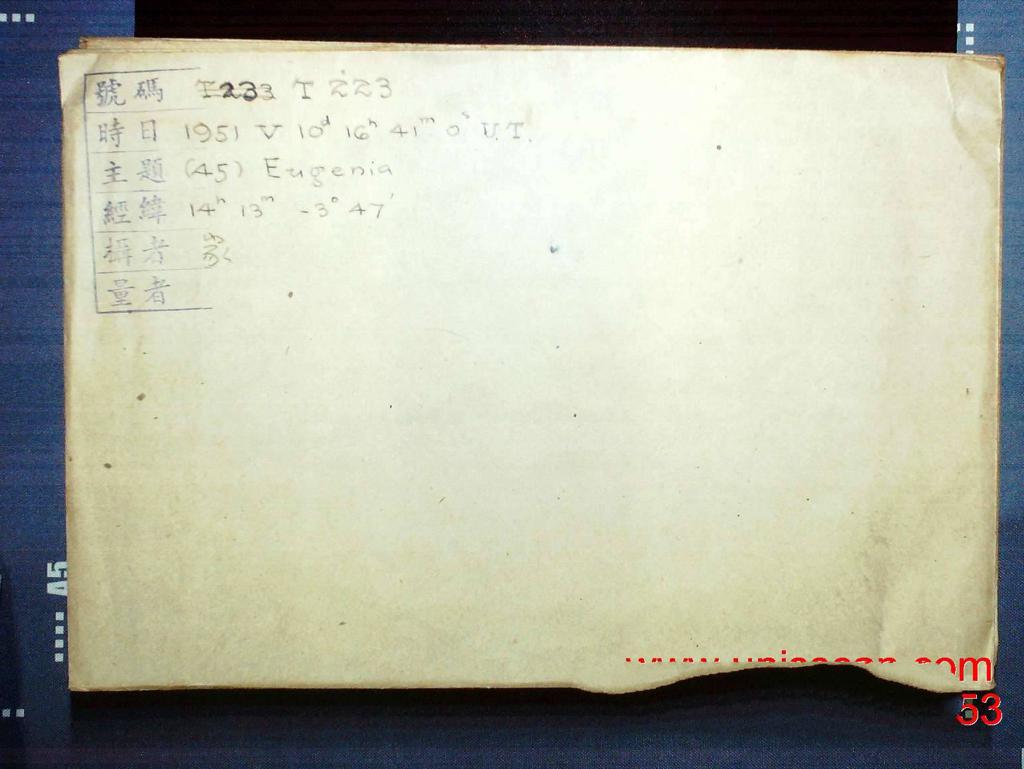 號碼 T233 T 223
時日 1951 V 10d 16h 41m 0s U.T.
主題 (45) Eugenia
經緯 14h 13m -3° 47'
攝者
量者
A5
53